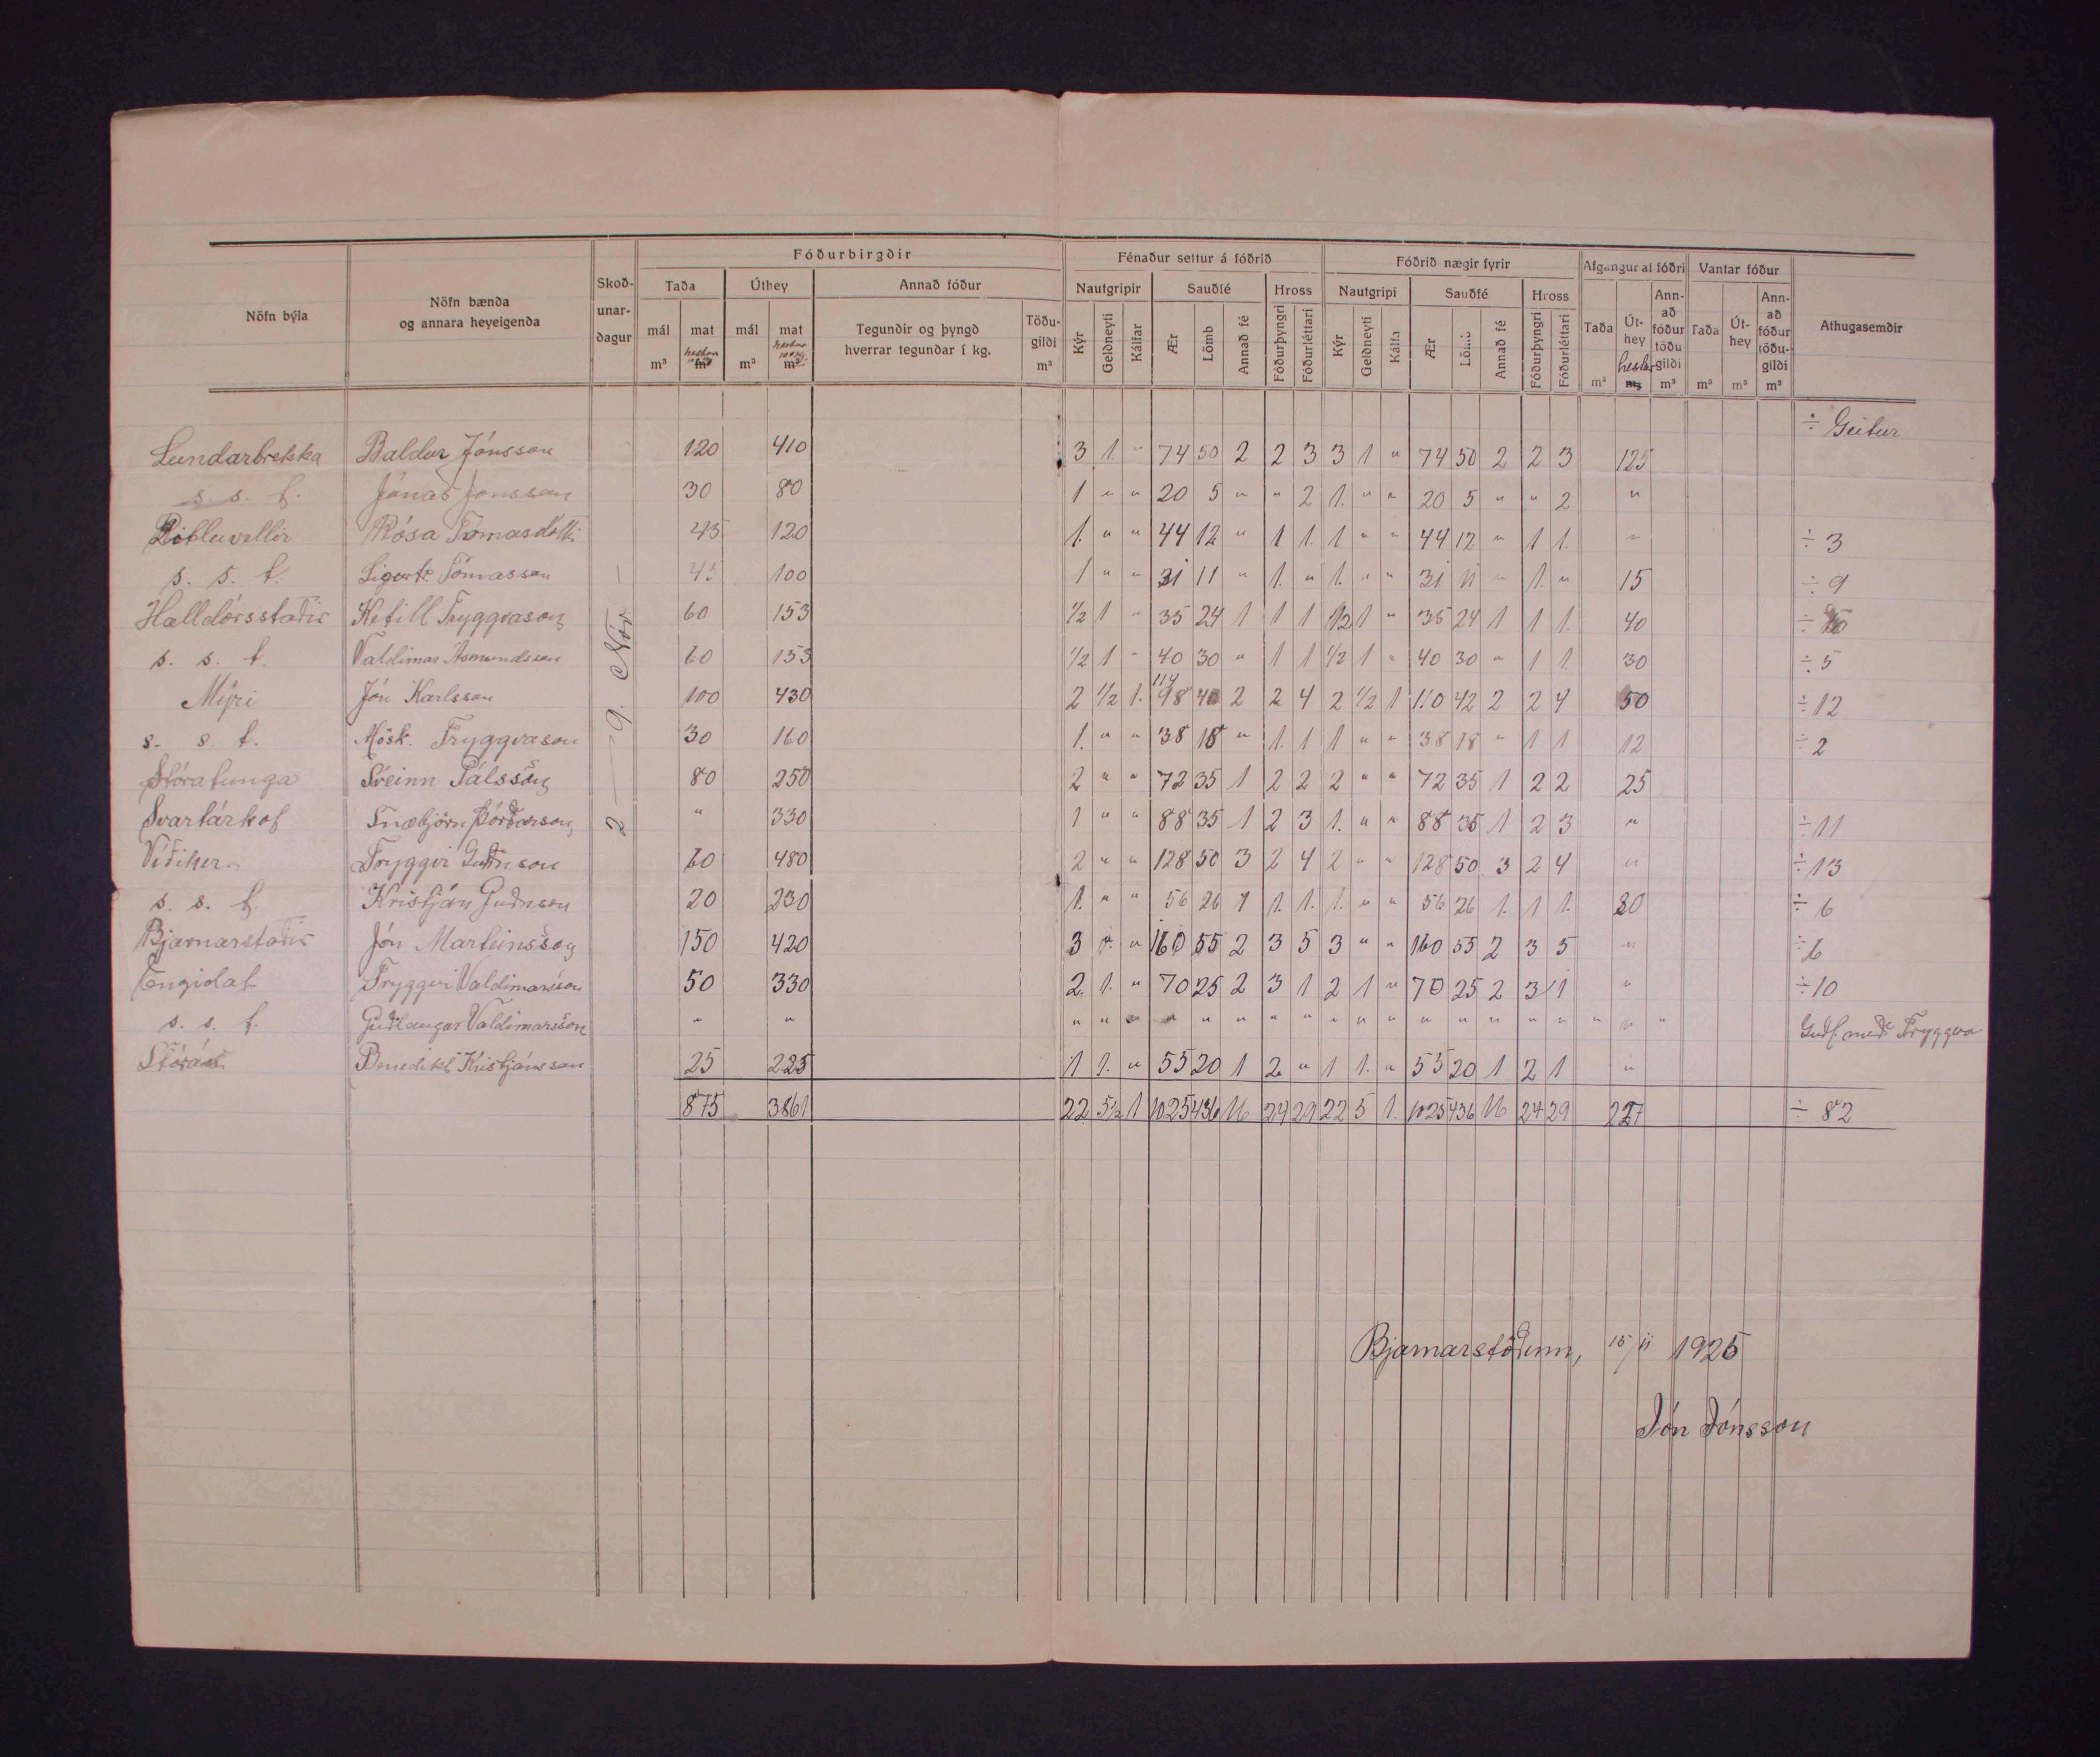 Fóðurbirgðir Fénaður settur á fóðrið Fóðrið nægir fyrir Afgangur af fóðri Vantar fóður
Nöfn býla Nöfn bænda og annara heyeigenda Skoð-unar-dagur Taða Úthey Annað fóður Nautgripir Sauðfé Hross Nautgripi Sauðfé Hross Taða Út-hey Ann-að fóður töðu gildi Taða Út-hey Ann-að fóður töðu-gildi Athugasemdir
mál m³ mat hestar m³ mál m³ mat hestar 100 kg. m³ Tegundir og þyngd hverrar tegundar í kg. Töðu-gildi m³ Kýr Geldneyti Kálfar Ær Lömb Annað fé Fóðurþyngri Fóðurléttari Kýr Geldneyti Kálfa Ær Lömb Annað fé Fóðurþyngri Fóðurléttari m³ hestar m³ m³ m³ m³ m³
÷ Geitur
2 — 9. Nóv —
Lundarbrekka Baldur Jónsson 120 410 3 1 " 74 50 2 2 3 3 1 " 74 50 2 2 3 125
s. s. t. Jónas Jónsson 30 80 1 " " 20 5 " " 2 1. " " 20 5 " " 2 "
Rósa Tómasdóttir 45 120 1. " " 44 12 " 1 1. 1 " " 44 12 " 1 1. " ÷ 3
s. s. t. Tómasson 45 100 1 " " 31 11 " 1. " 1. " " 31 11 " 1. " 15 ÷ 9
Halldórsstaðir Ketill Tryggvason 60 153 1/2 1 " 35 24 1 1 1 1/2 1 " 35 24 1 1 1. 40 ÷
s. s. t. Valdimar Ásmundsson 60 153 1/2 1 " 40 30 " 1 1 1/2 1 " 40 30 " 1 1. 30 ÷ 5
Mýri Jón Karlsson 100 430 2 1/2 1. 114 98 2 2 4 2 1/2 1 110 42 2 2 4 50 ÷ 12
s. s. t. Hösk. Tryggvason 30 160 1. " " 38 18 " 1. 1 1 " " 38 18 " 1 1 12 ÷ 2
Stóratunga Sveinn Pálsson 80 250 2 " " 72 35 1 2 2 2 " " 72 35 1 2 2 25
Svartárkot Snæbjörn Þórðarson 330 1 " " 88 35 1 2 3 1. " " 88 35 1 2 3 " ÷ 11
Víðiker Tryggvi Guðnson 60 480 2 " " 128 50 3 2 4 2 " " 128 50 3 2 4 " ÷ 13
s. s. t. Kristján Guðnson 20 230 1. " " 56 26 1 1. 1. 1. " " 56 26 1. 1 1. 20 ÷ 6
Bjarnarstaðir Jón Marteinsson 150 420 3 " 160 55 2 3 5 3 " " 160 55 2 3 5 " ÷ 6
Engidal Tryggvi Valdimarsson 50 330 2 1. " 70 25 2 3 1 2 1 " 70 25 2 3 1 " ÷ 10
s. s. t. Guðlaugur Valdimarsson " " " " " " " " " " " " " " " " " " " " " Guðl með Tryggva
Stórás Benedikt Kristjánsson 25 225 1 1. " 55 20 1 2 " 1 1. " 55 20 1 2 1 "
875 3861 22 5 1/2 1 1025 436 16 24 29 22 5 1. 1025 436 16 24 29 ÷ 82
Bjarnarstöðum, 15/11 1925
Jón Jónsson